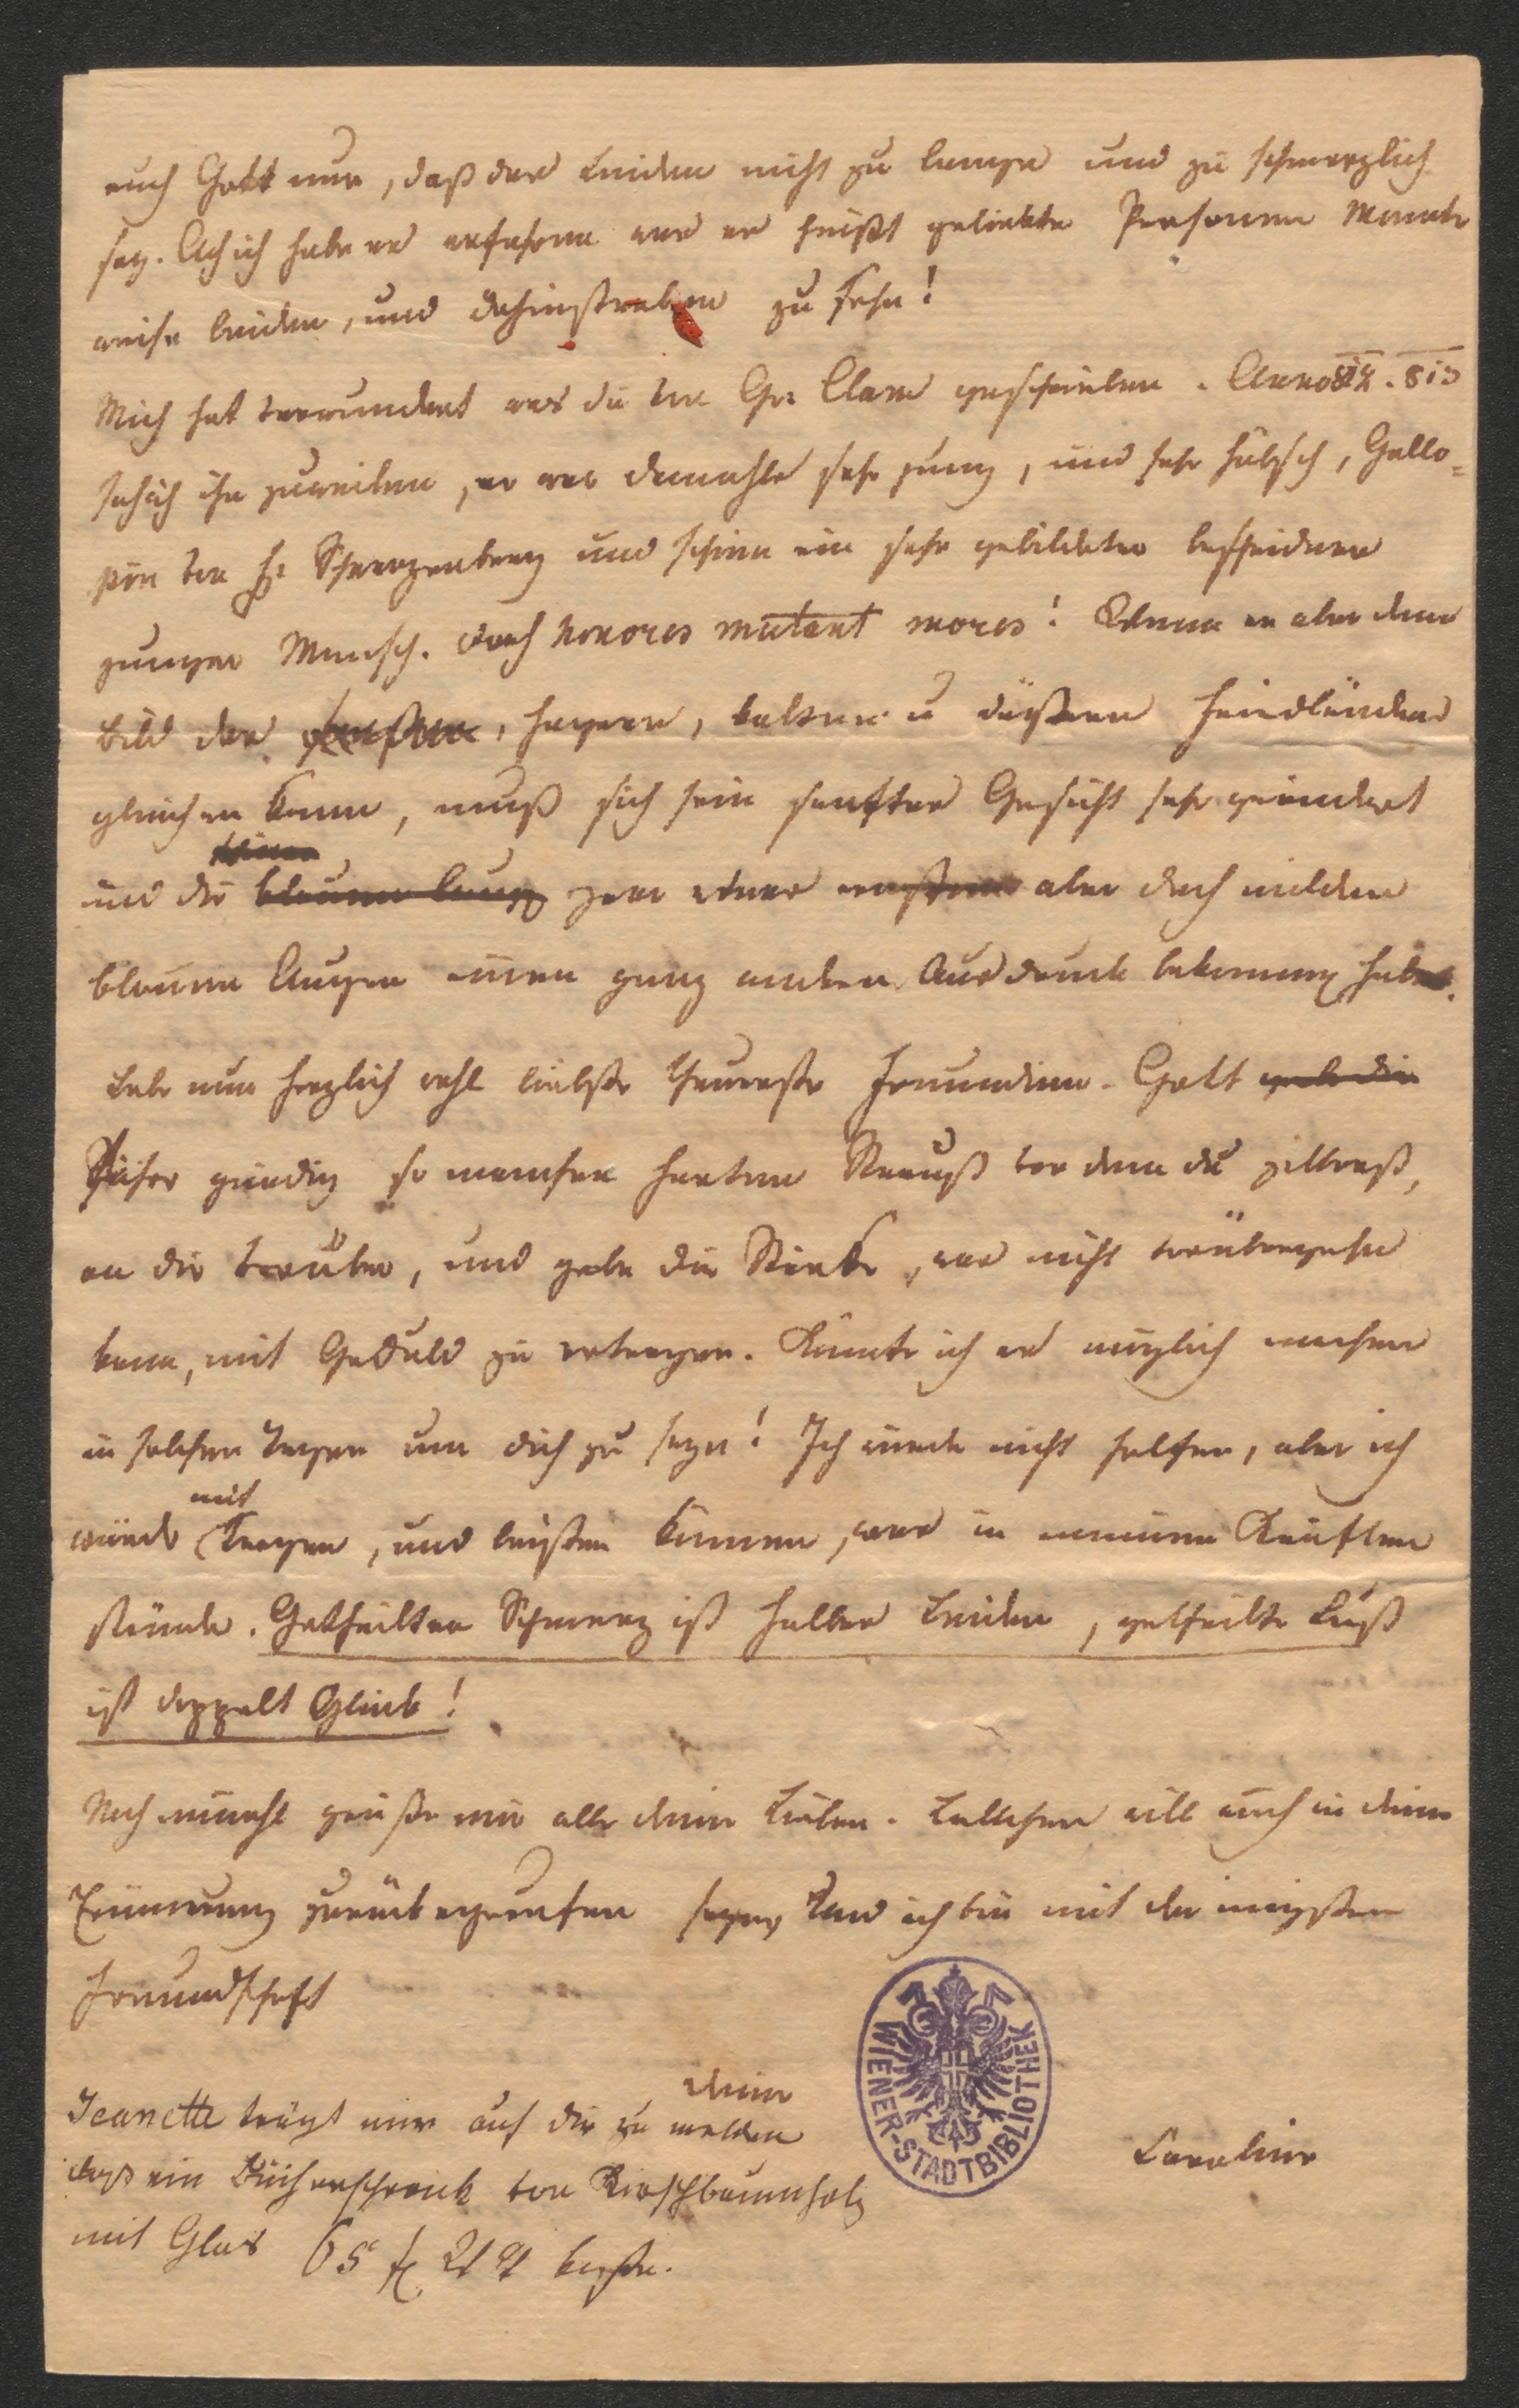 auch Gott nur, daß das Leiden nicht zu lange und zu schmerzlich
sey. Ach ich habe es erfahren was es heißt geliebte Personen Monate
weise leiden, und dahinsterben zu sehn!
Mich hat verwundert was du von Gr: Clam geschrieben. Anno 812. 813
sah ich ihn zuweilen, er war damahls sehr jung, und sehr hübsch, Gallo=
pin von Fr: Schwarzenberg und schien ein sehr gebildeter bescheidner
junger Mensch. Doch honores mutant mores! Wenn er aber dem
Bild des, hagern, kalten u düstern Friedländers
gleichen kann, muß sich sein sanftes Gesicht sehr geändert
und die seine blauen Auge zwar etwas ernsten aber doch milden
blauen Augen einen ganz andern Ausdruck bekommen haben.
Lebe nun herzlich wohl liebste theuerste Freundinn. Gott gebe dir
führe gnädig so manchen harten Strauß vor dem du zitterst,
an dir vorüber, und gebe dir Stärke, was nicht vorübergehn
kann, mit Geduld zu ertragen. Könnte ich es möglich machen
in solchen Tagen um dich zu seyn! Ich würde nicht helfen, aber ich
würde mit tragen, und leisten können, was in meinen Kräften
stünde. Getheilter Schmerz ist halbes Leiden, getheilte Lust
ist doppelt Glück!
Noch einmahl grüße mir alle deine Lieben. Lottchen will auch in deine
Erinnerung zurückgerufen seyn, Und ich bin mit der innigsten
Freundschaft
deine
Jeanette trägt mir auf dir zu melden
daß ein Bücherschrank von Kirschbaumholz
mit Glas 65 f koste.
Caroline
WIENER-STADTBIBLIOTHEK